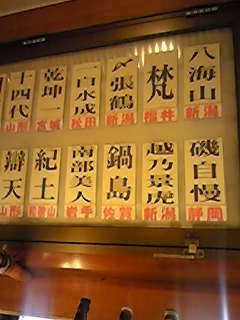 八海山
新潟
梵
福井
〆張鶴
新潟
一白水成
秋田
乾坤一
宮城
十四代
山形
磯自慢
静岡
越乃景虎
新潟
鍋島
佐賀
南部美人
岩手
紀土
和歌山
辯天
山形